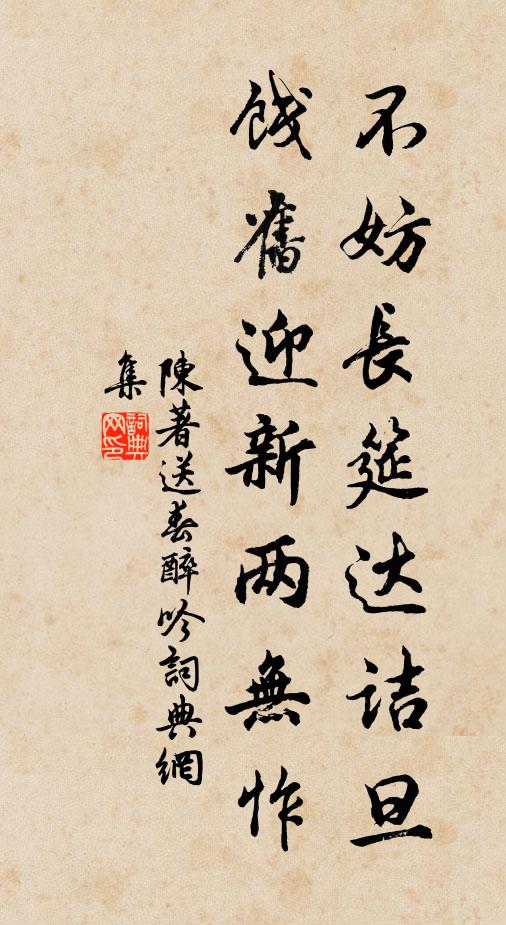 不妨長筵达诘旦
饯舊迎新两無怍
陳著送春醉吟詞典網
集
詞典网印